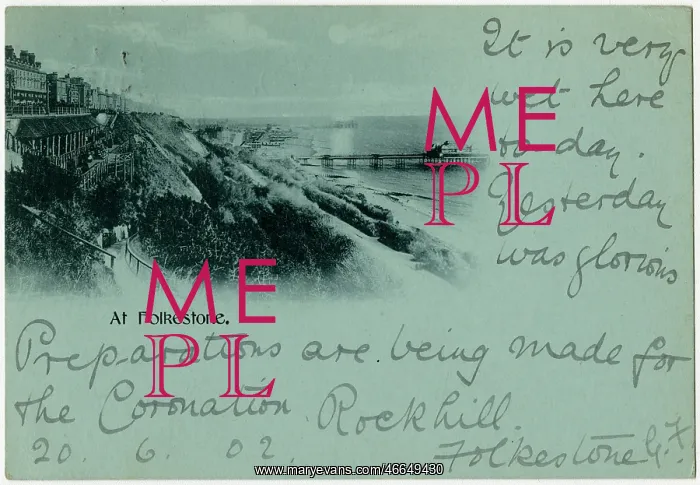 It is very
wet here
to day.
Yesterday
was glorious
At Folkestone.
Preparations are being made for
the Coronation Rockhill.
20. 6. 02. Folkestone
ME
PL
ME
PL
www.maryevans.com/46649430